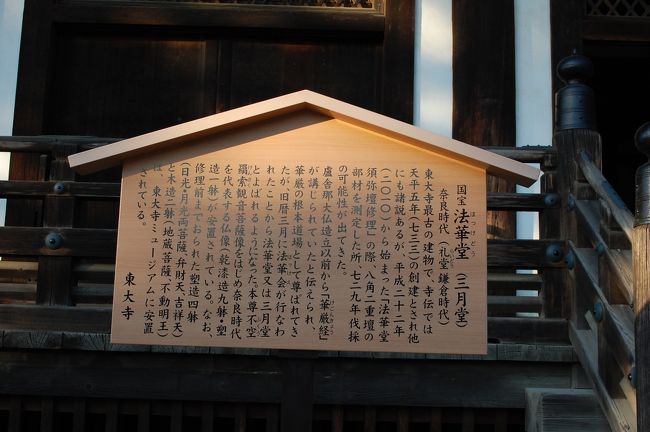 国宝 法華堂（三月堂）
ほっけどう
奈良時代（礼堂 鎌倉時代）
東大寺最古の建物で、寺伝では
天平五年（七三三）の創建とされ他
にも諸説あるが、平成二十二年
（二〇一〇）から始まった「法華堂
須弥壇修理」の際、八角二重壇の
部材を測定した所、七二九年伐採
の可能性が出てきた。
盧舎那大仏造立以前から「華厳経」
が講じられていたと伝えられ、
華厳の根本道場として尊ばれてき
たが、旧暦三月に法華会が行なわ
れたことから法華堂又は三月堂
とよばれるようになった。本尊不空
羂索観音菩薩像をはじめ奈良時代
を代表する仏像（乾漆造九躰・塑
造一躰）が安置されている。なお、
修理前までおられた塑造四躰
（日光・月光両菩薩、弁財天・吉祥天）
と木造二躰（地蔵菩薩、不動明王）
は、東大寺ミュージアムに安置
されている。
東大寺